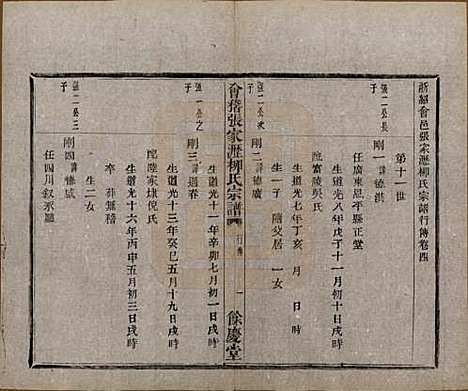 浙紹會邑張家瀝柳氏宗譜行傳卷四
第十一世
張二公長子
剛一 諱德洪
任廣東恩平縣正堂
生道光八年戊子十一月初十日戌時
配富陵吳氏
生道光七年丁亥 月 日 時
生一子 隨父居 一女
張二公次子
剛二 諱德廣
會稽張家瀝柳氏宗譜
行傳
一
餘慶堂
張一公之子
剛三 諱過春
生道光十一年辛卯七月初一日戌時
配陸家埭倪氏
生道光十三年癸巳五月十九日戌時
卒 道光十六年丙申五月初三日戌時
生二女
張二公三子
剛四 諱德威
任四川敘永廳